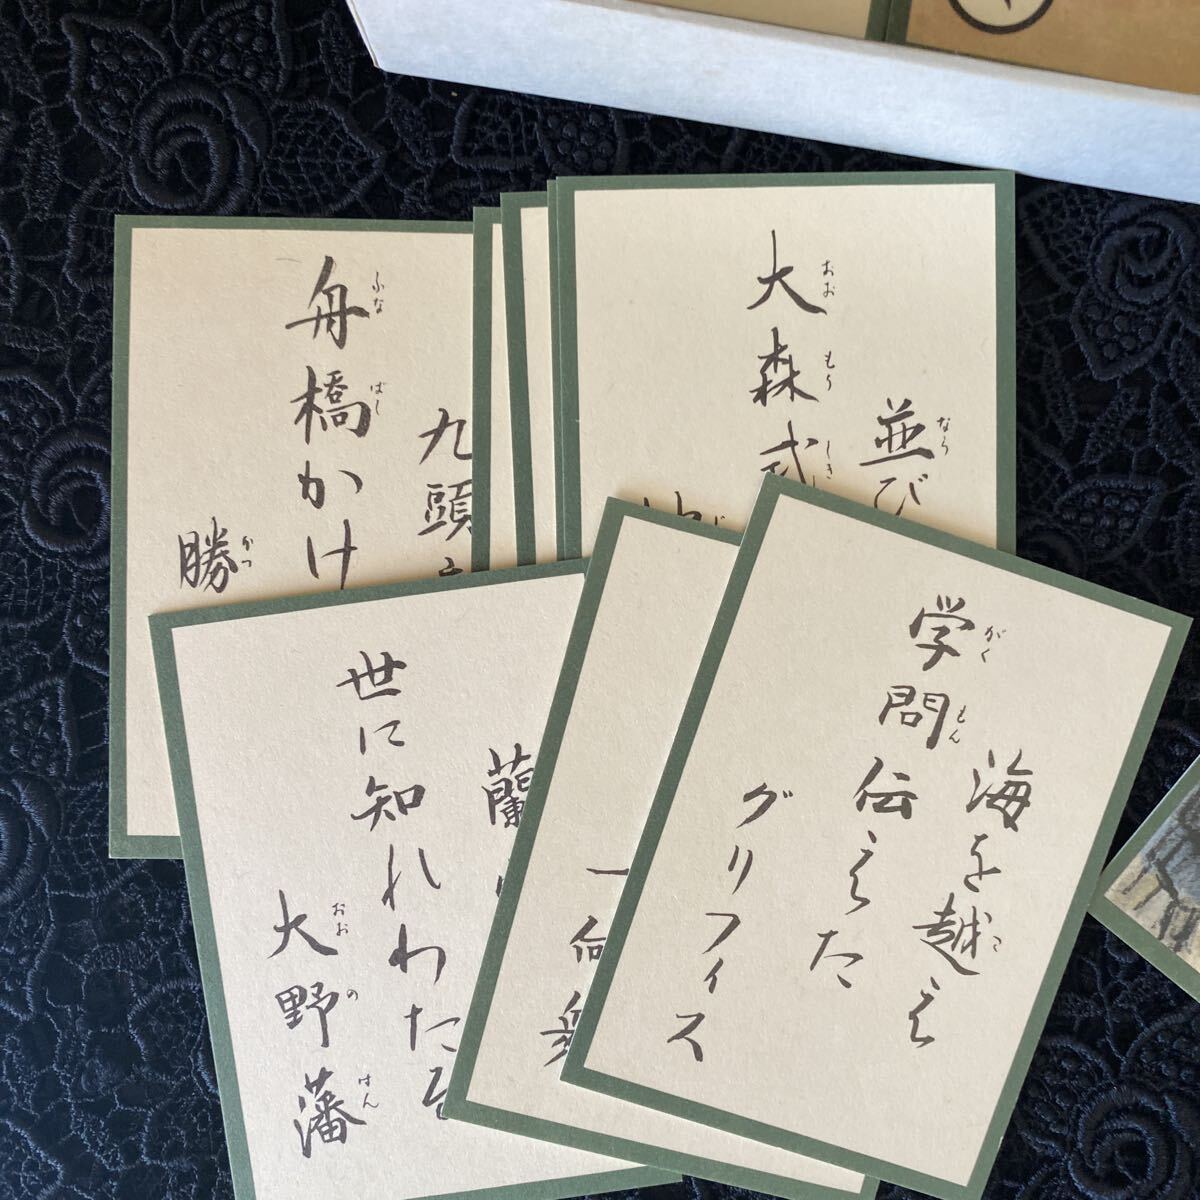 九頭
舟橋かけ
勝
ふな
ばし
かつ
並び
大森式
なら
おお
もり
しき
蘭
世に知れわたる
大野藩
おお
の
はん
海を越え
学問伝えた
グリフィス
こ
がく
もん